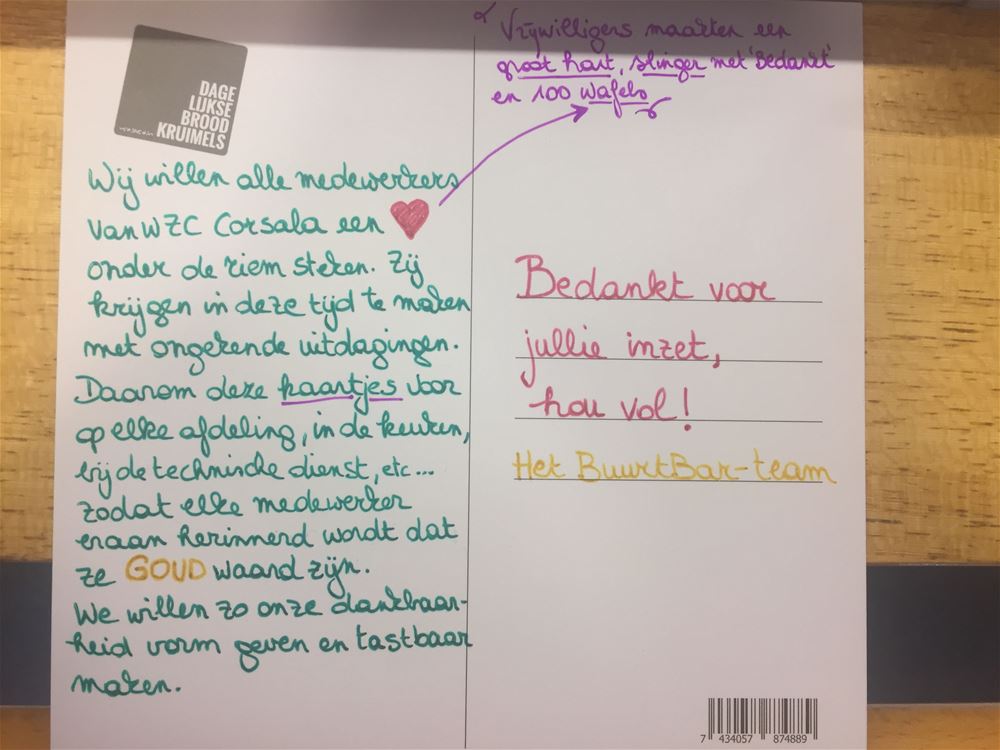 DAGE
LIJKSE
BROOD
KRUIMELS
Wij willen alle medewerkers
van WZC Corsala een
onder de riem steken. Zij
krijgen in deze tijd te maken
met ongekende uitdagingen.
Daarom deze kaartjes voor
op elke afdeling, in de keuken,
bij de technische dienst, etc...
zodat elke medewerker
eraan herinnerd wordt dat
ze GOUD waard zijn.
We willen zo onze dankbaar-
heid vorm geven en tastbaar
maken.
Vrijwilligers maakten een
groot hart, slinger met 'Bedankt'
en 100 wafels
Bedankt voor
jullie inzet,
hou vol!
Het BuurtBar-team
7 434057 874889